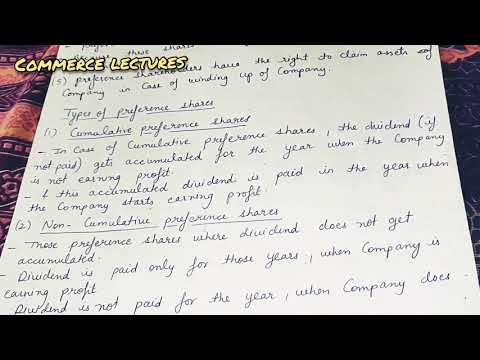 these shares
COMMERCE LECTURES
(5) preference shareholders have the right to claim assets of
Company in Case of winding up of Company.
Types of preference shares
(1) Cumulative preference shares
- In Case of Cumulative preference shares, the dividend (if
not paid) gets accumulated for the year when the Company
is not earning profit.
- & this accumulated dividend is paid in the year when
the Company starts earning profit.
(2) Non-Cumulative preference shares
- Those preference shares where dividend does not get
accumulated.
- Dividend is paid only for those years, when Company is
earning profit
Dividend is not paid for the year, when Company does